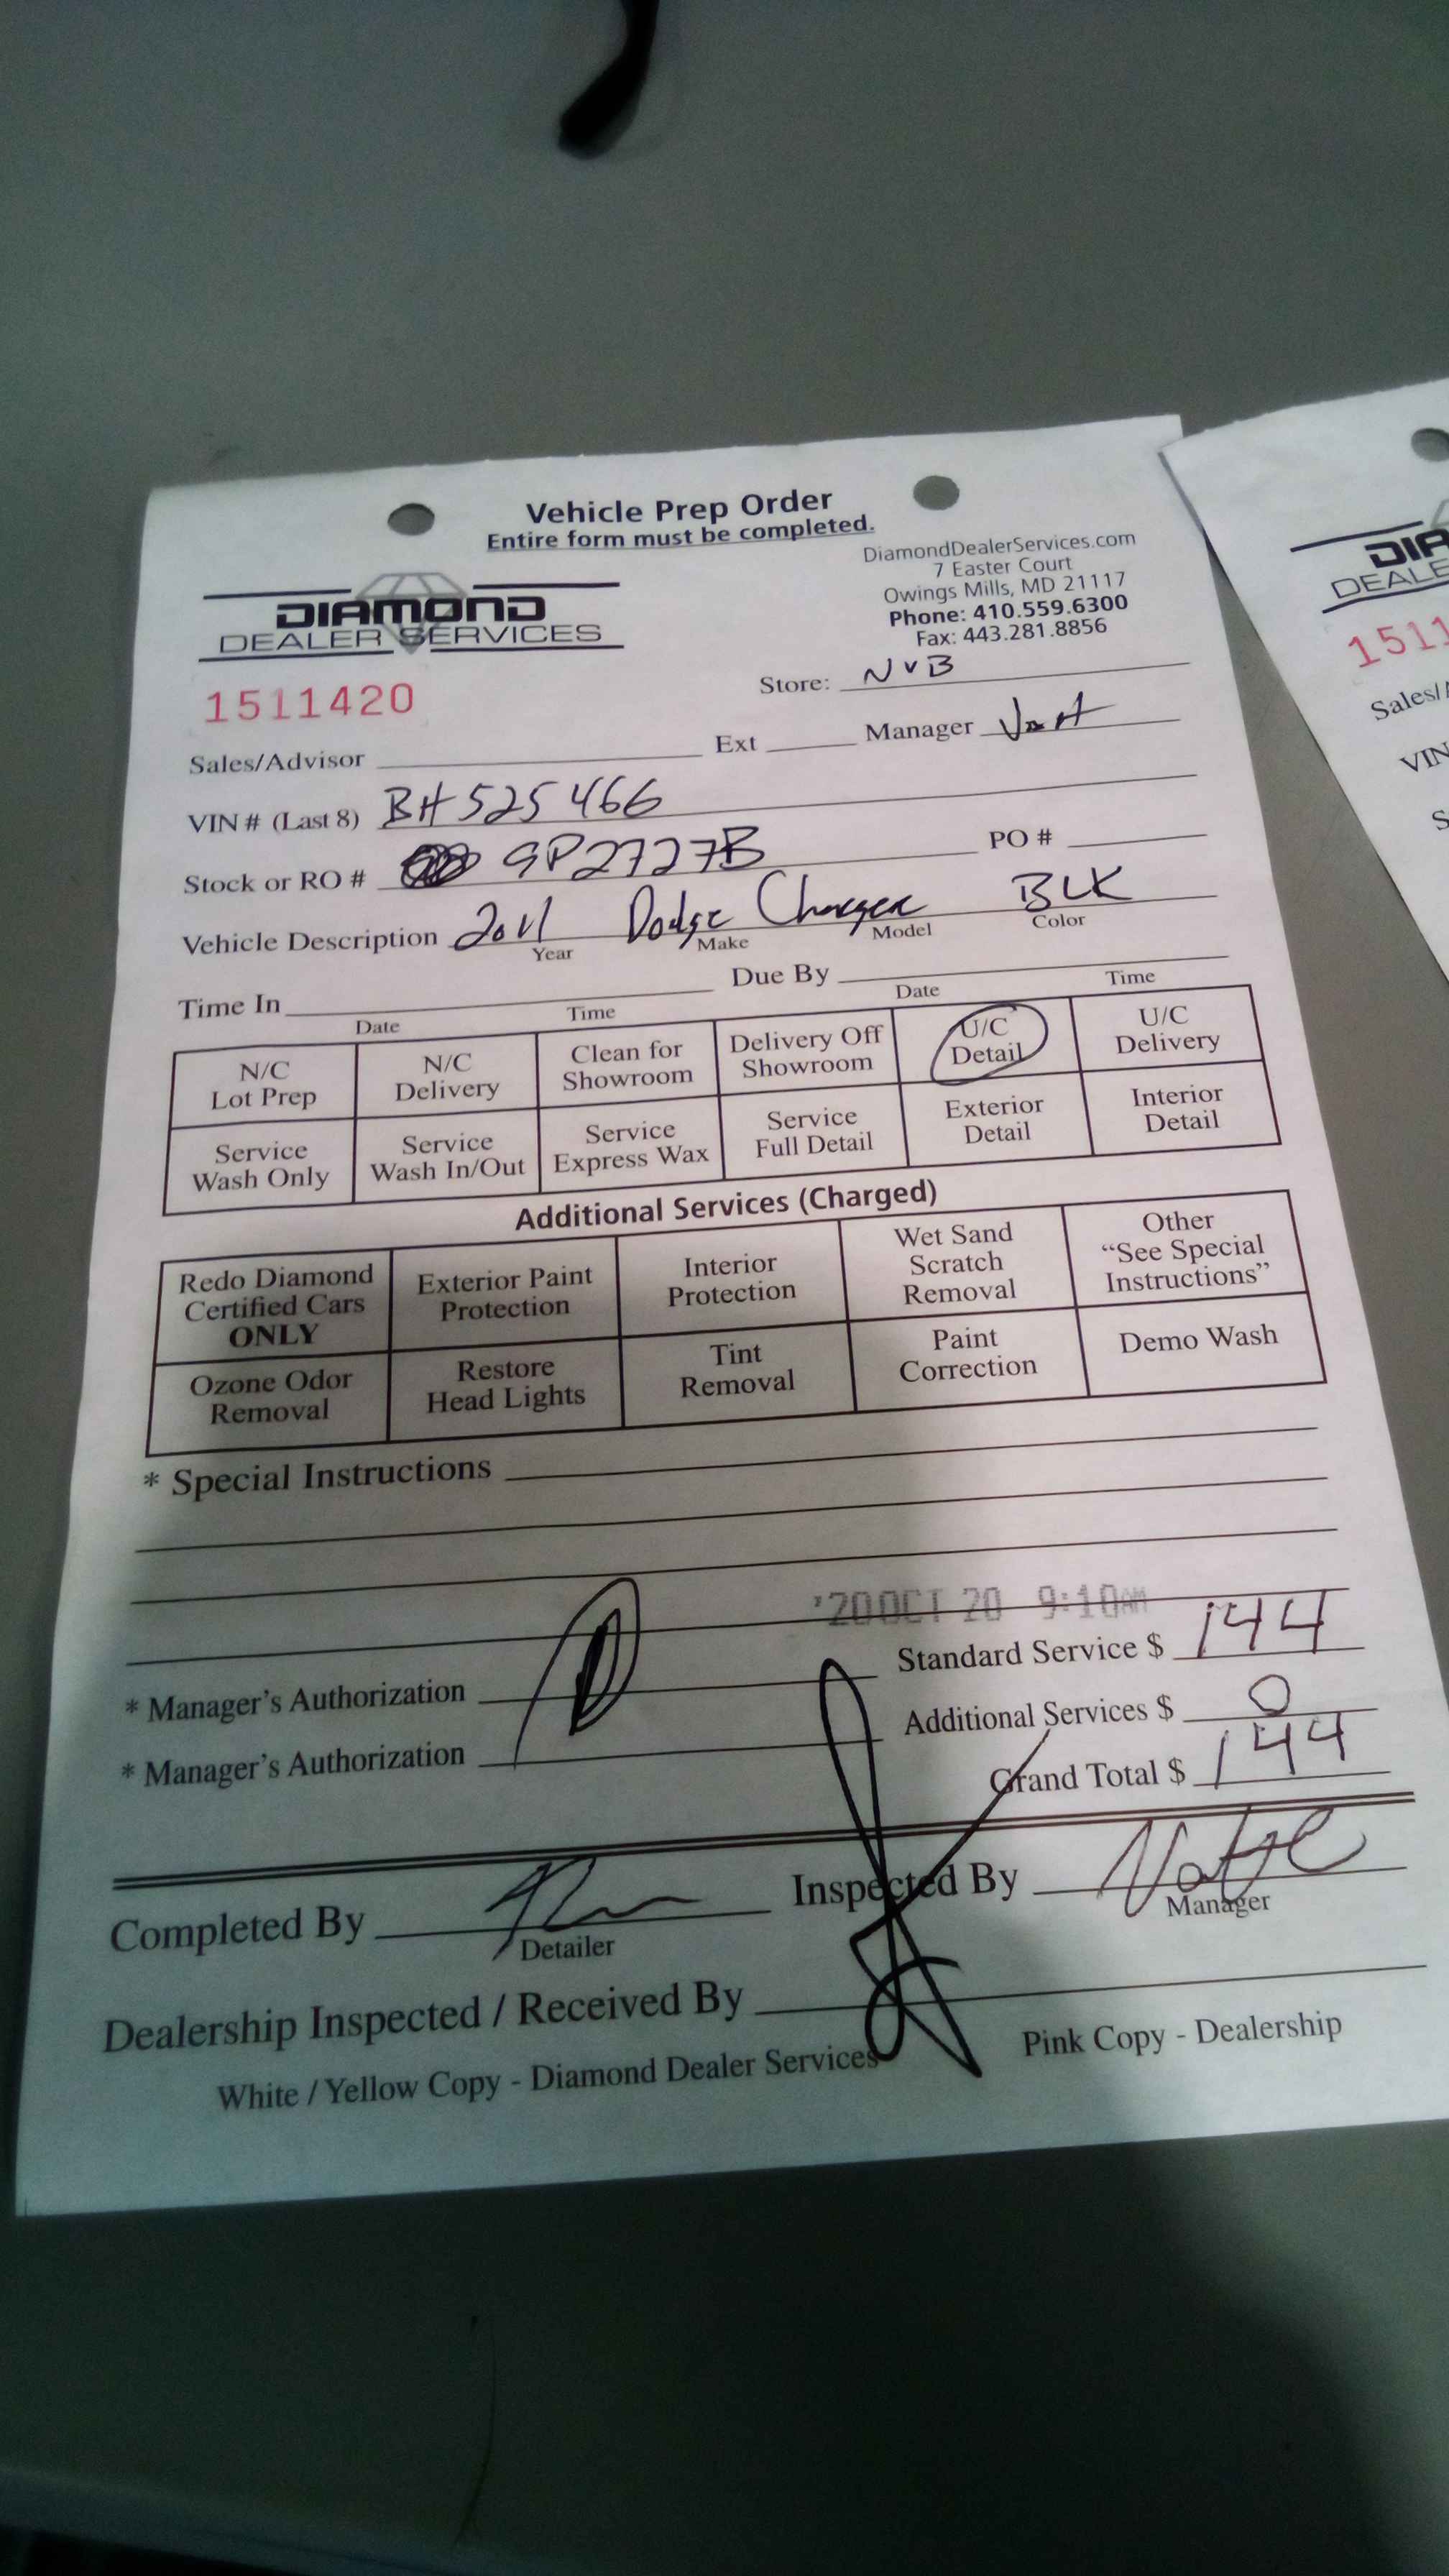 Vehicle Prep Order
Entire form must be completed.
DiamondDealerServices.com
7 Easter Court
Owings Mills, MD 21117
Phone: 410.559.6300
Fax: 443.281.8856
DIAMOND
DEALER SERVICES
1511420
Store: NVB
Sales/Advisor Ext Manager
VIN # (Last 8) BH525466
Stock or RO # 9P2727B PO #
Vehicle Description 2011 Dodge Charger BLK
Year Make Model Color
Time In Due By
Date Time Date Time
N/C Lot Prep
N/C Delivery
Clean for Showroom
Delivery Off Showroom
U/C Detail
U/C Delivery
Service Wash Only
Service Wash In/Out
Service Express Wax
Service Full Detail
Exterior Detail
Interior Detail
Additional Services (Charged)
Redo Diamond Certified Cars ONLY
Exterior Paint Protection
Interior Protection
Wet Sand Scratch Removal
Other "See Special Instructions"
Ozone Odor Removal
Restore Head Lights
Tint Removal
Paint Correction
Demo Wash
* Special Instructions
'20 OCT 20 9:10AM
* Manager's Authorization Standard Service $ 144
Additional Services $ 0
* Manager's Authorization Grand Total $ 144
Completed By Inspected By
Detailer Manager
Dealership Inspected / Received By
White / Yellow Copy - Diamond Dealer Services Pink Copy - Dealership
DIA
DEALE
1511
Sales/
VIN
S